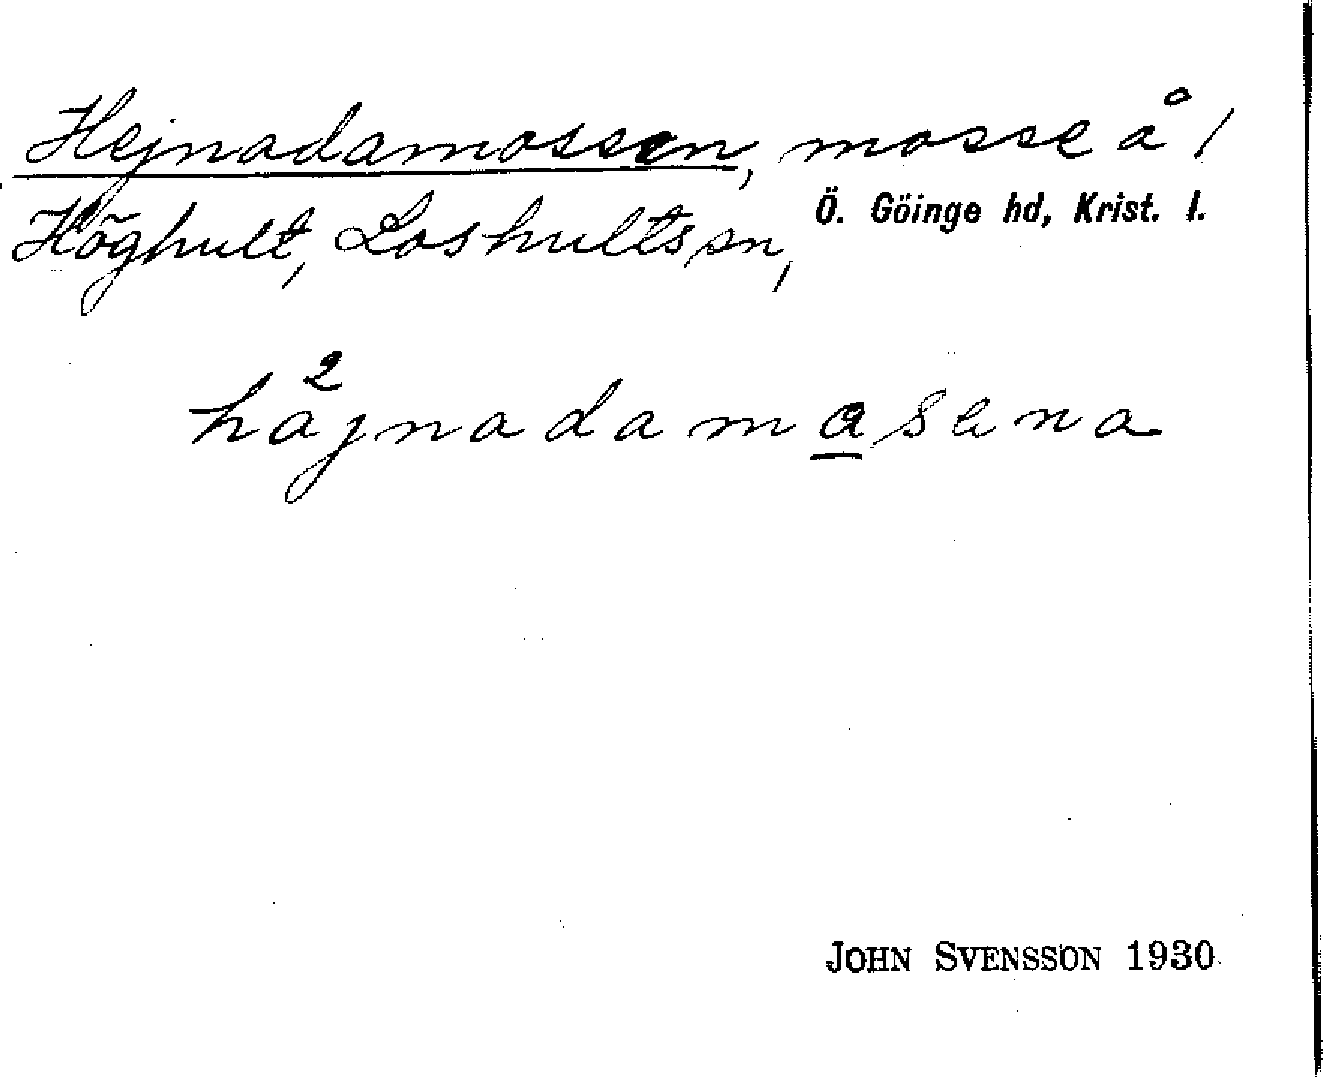 Hejnadamossen, mosse å /
Höghult, Loshults sn, Ö. Göinge hd, Krist. l.
2
håjnadamasena
JOHN SVENSSON 1930